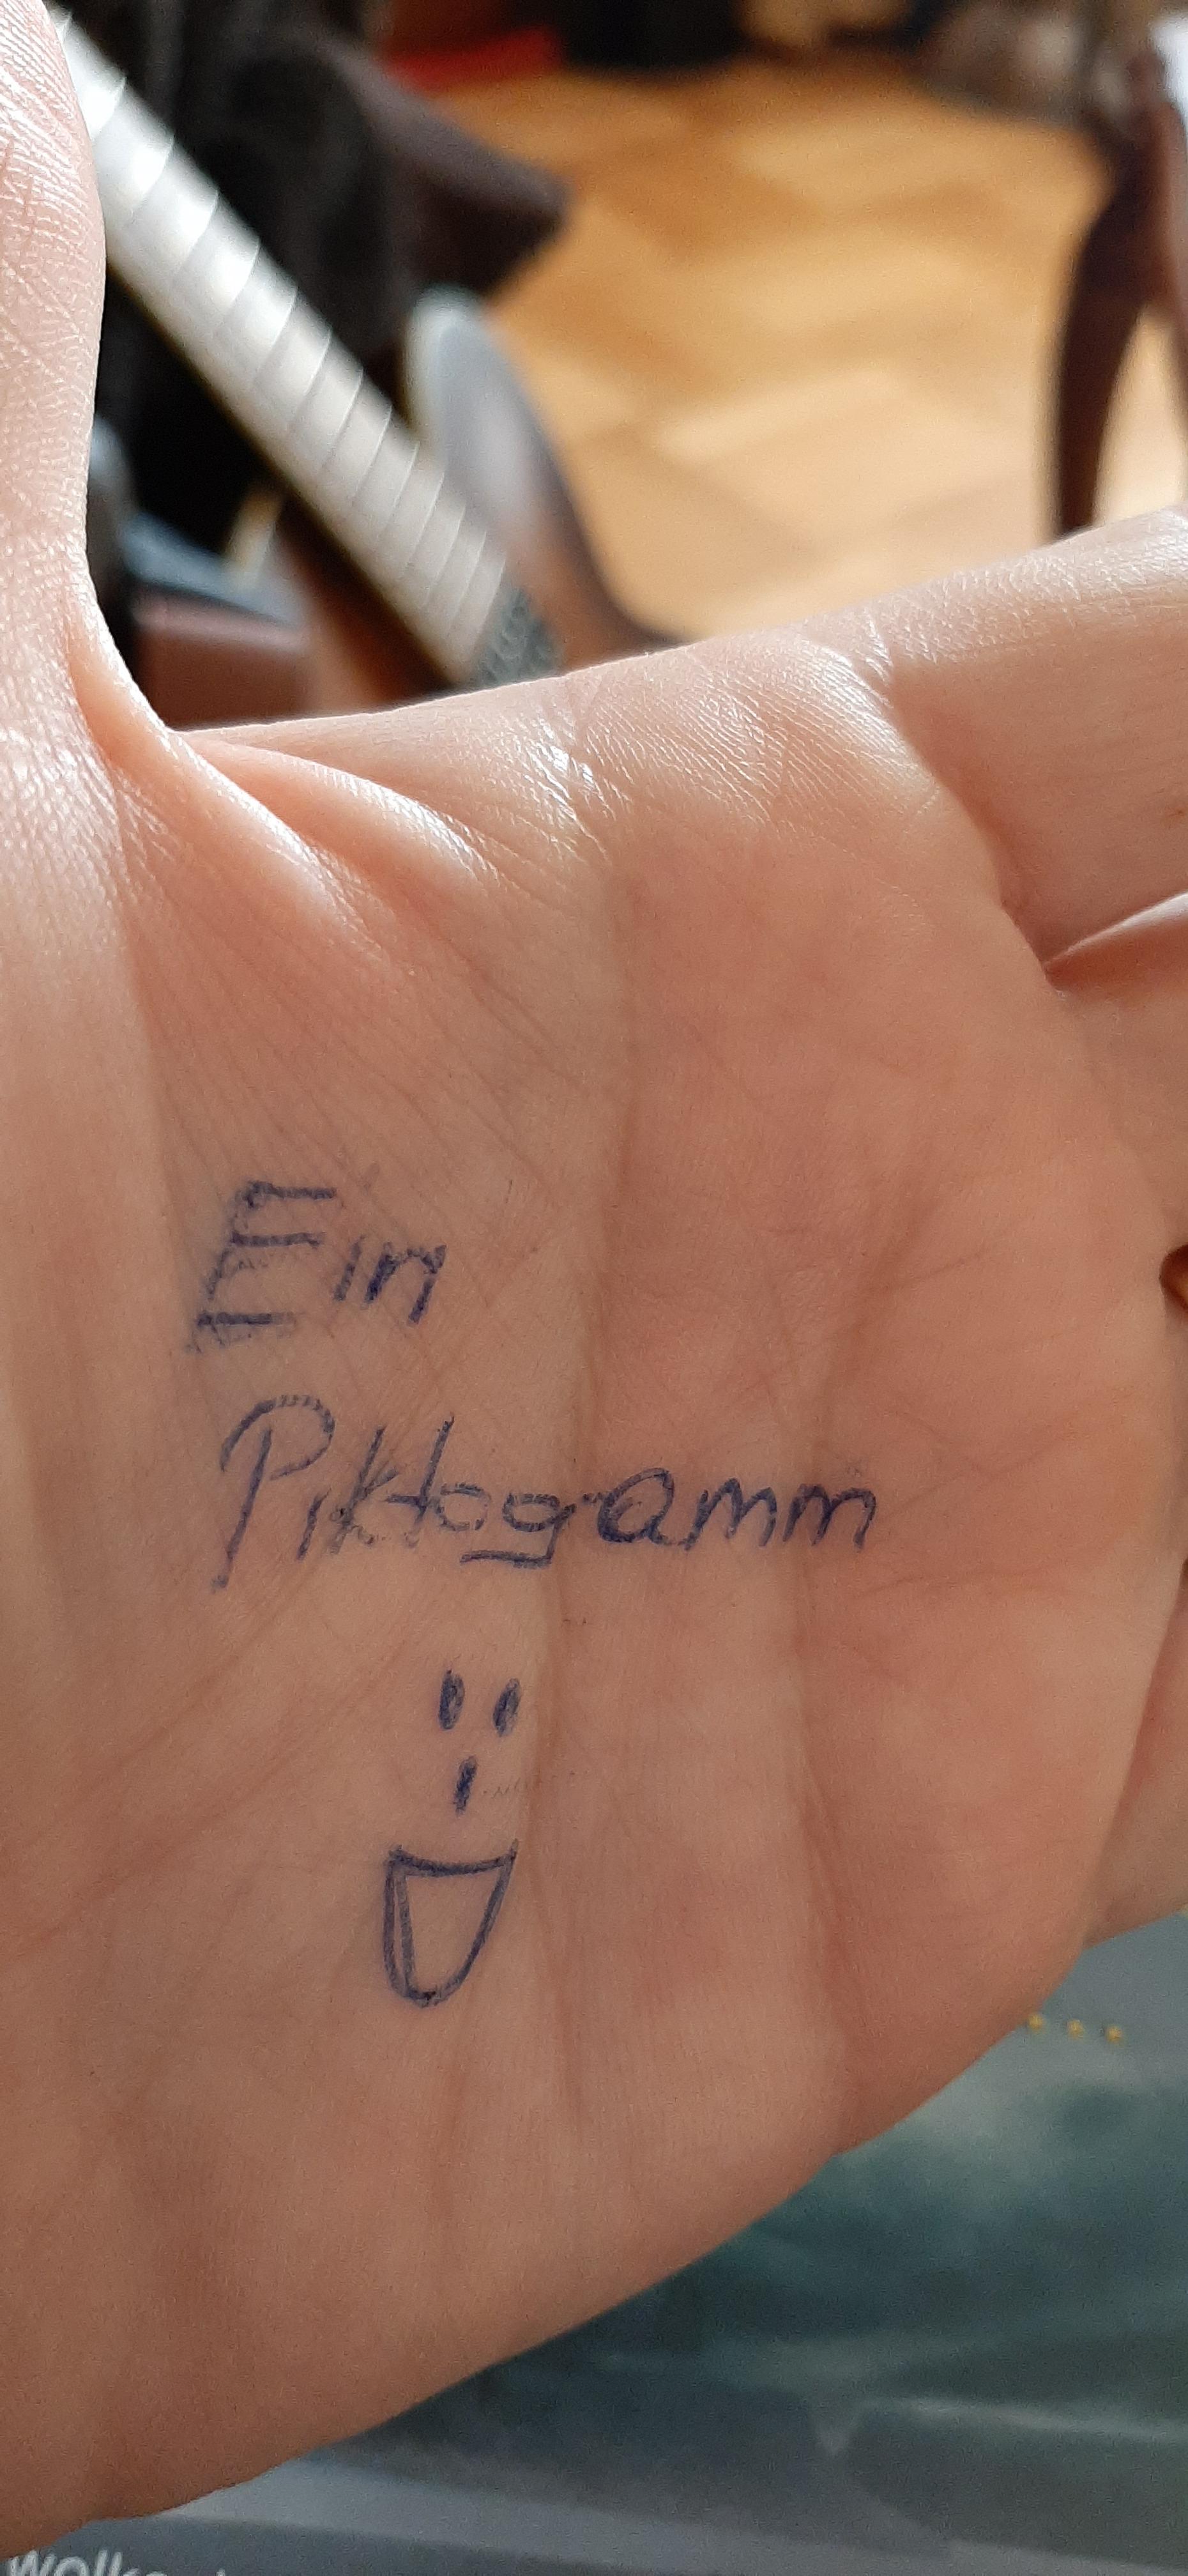 Ein
Piktogramm